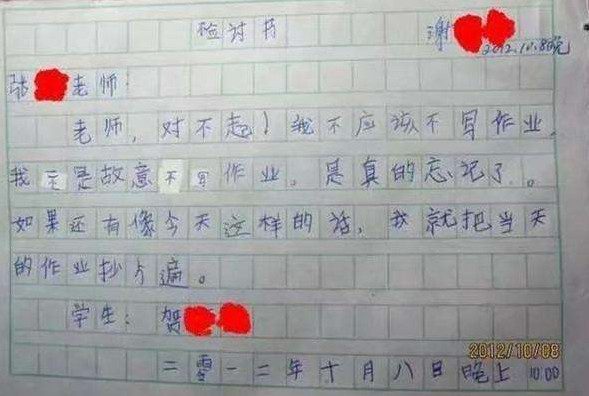 检讨书 谢
2012.10.8晚
张 老师:
老师,对不起!我不应该不写作业,
我不是故意不写作业。是真的忘记了。
如果还有像今天这样的话,我就把当天
的作业抄 遍。
学生: 贺
2012/10/08
二零一二年十月八日晚上10:00